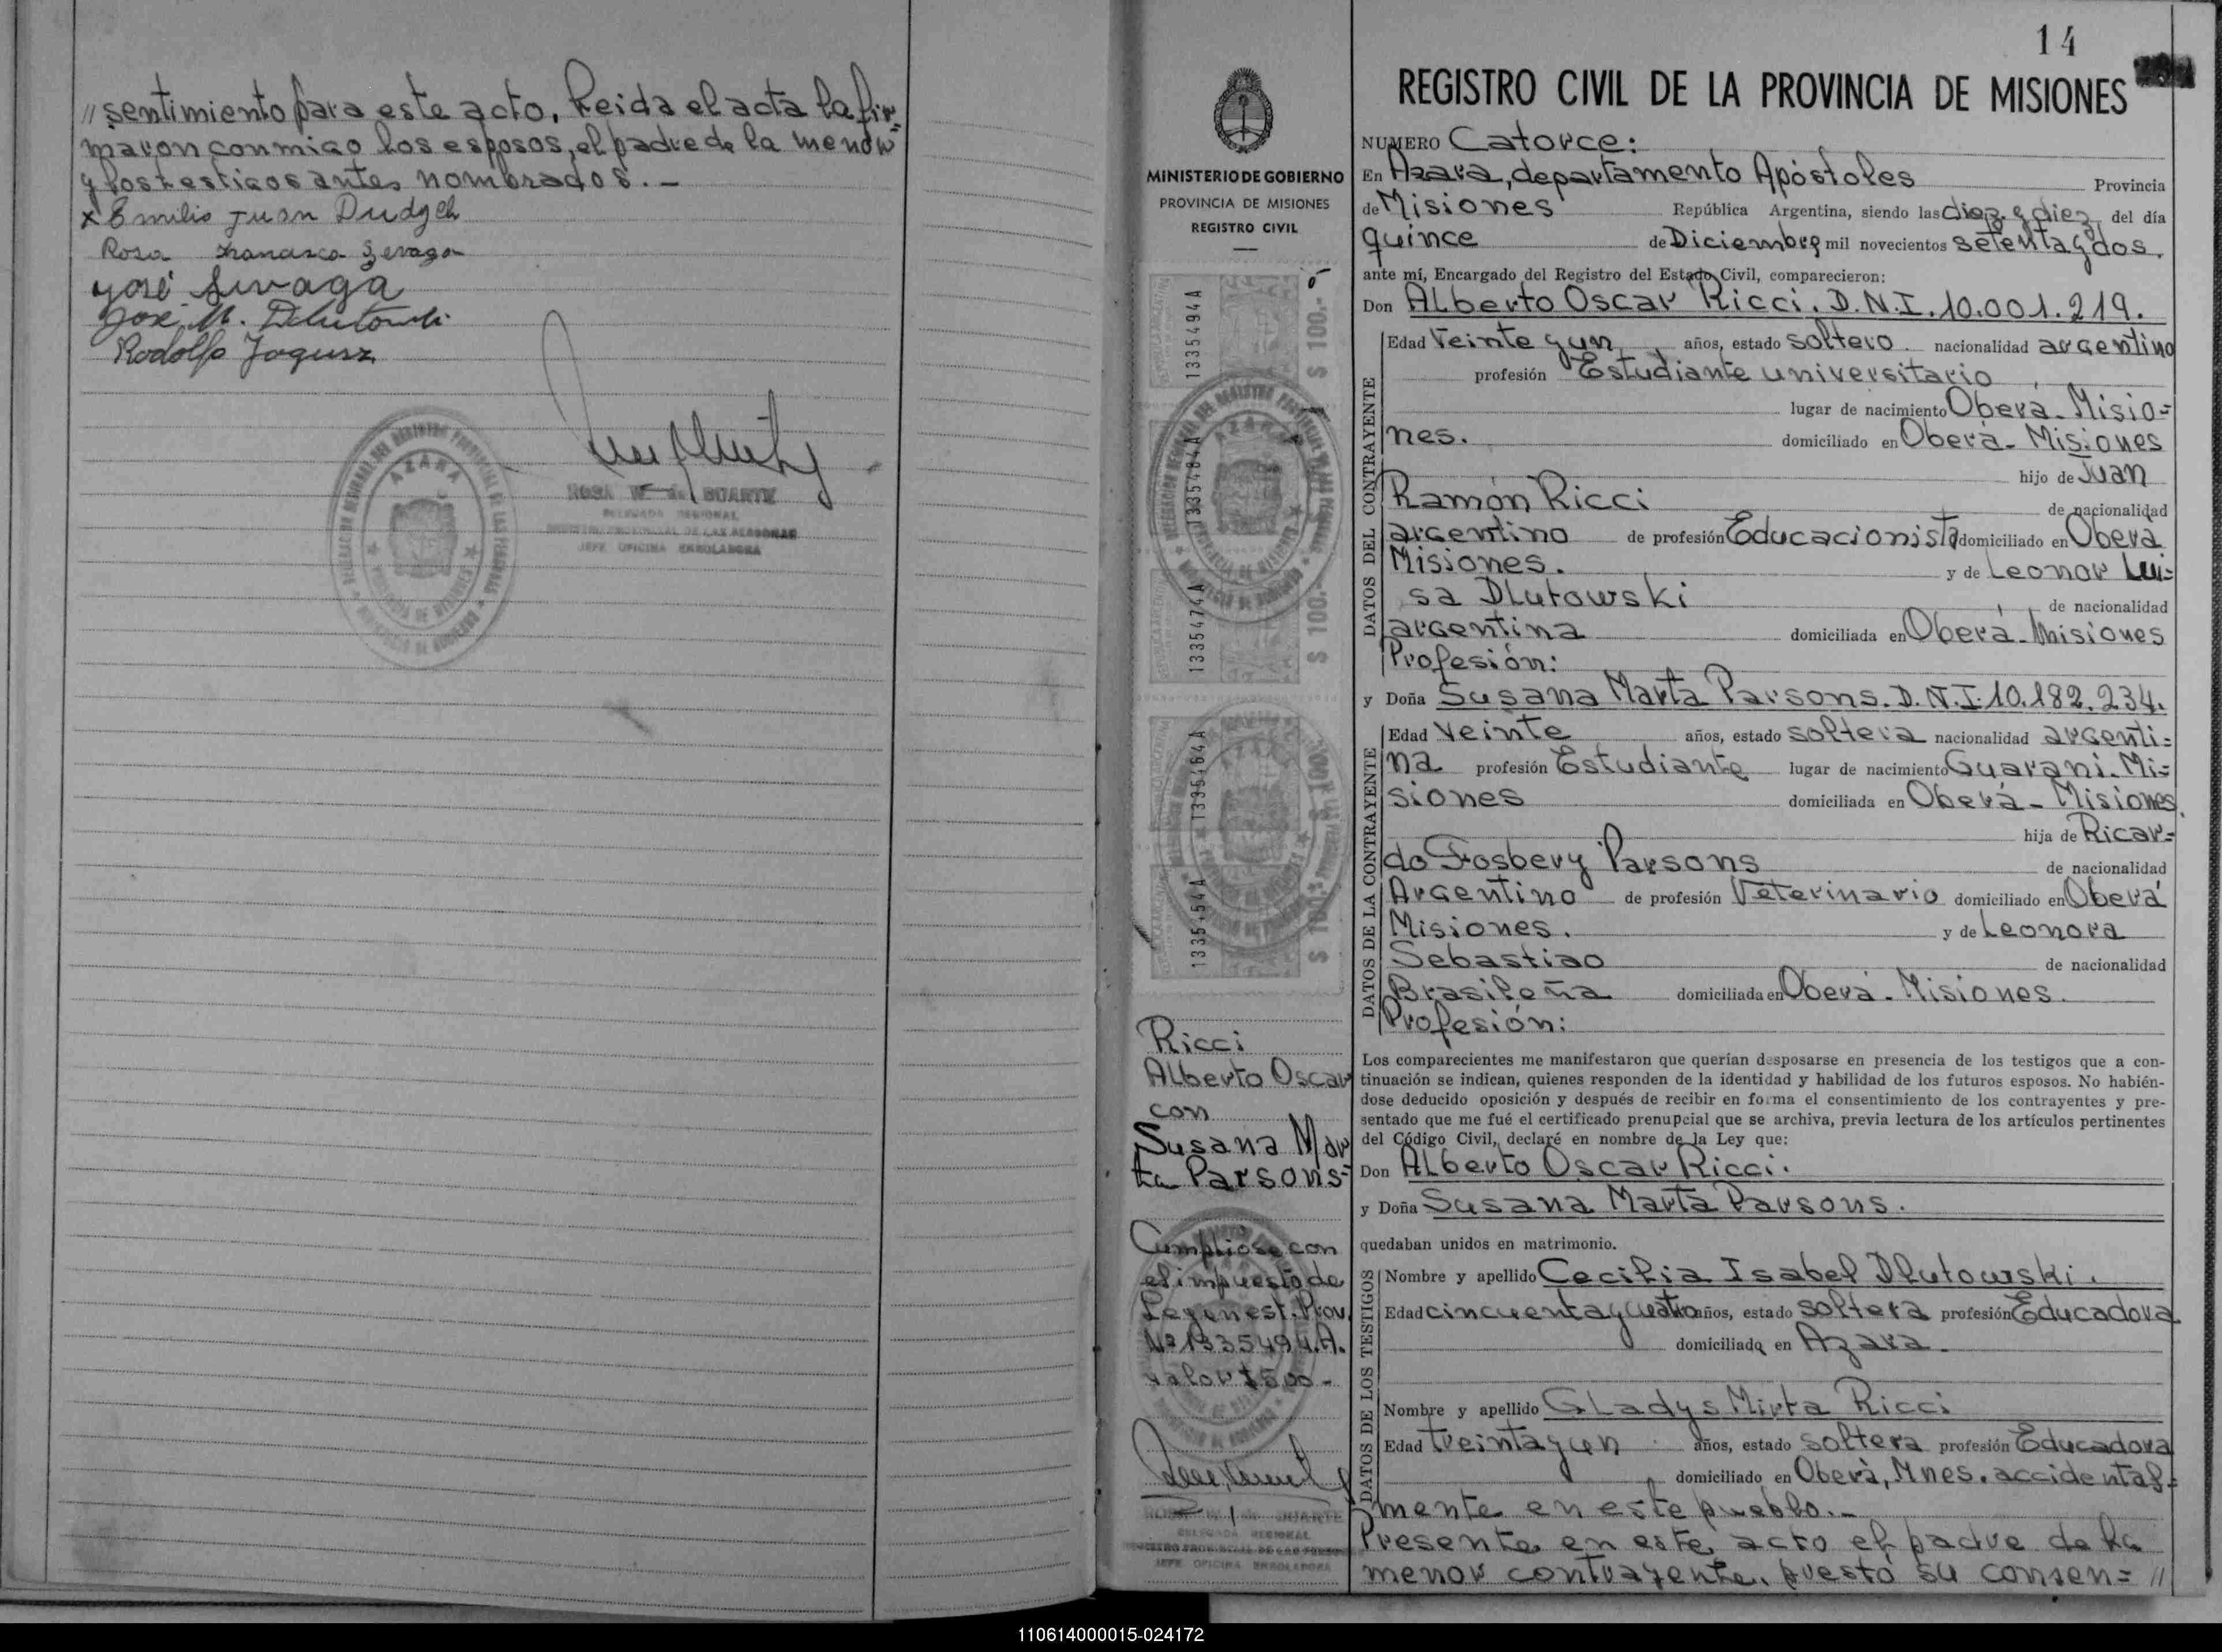 // sentimiento para este acto. Leida el acta la fir=
maron conmigo los esposos, el padre de la menor
y los testigos antes nombrados. -
x Emilio Juan Dudzeh
Rosa Francisca Sevaga
José Sevaga
José M. Dlutowski
Rodolfo Jagusz
AZARA
PROVINCIA DE MISIONES
ROSA W. de DUARTE
DELEGADA REGIONAL
REGISTRO PROVINCIAL DE LAS PERSONAS
JEFE OFICINA ENROLADORA
14
MINISTERIO DE GOBIERNO
PROVINCIA DE MISIONES
REGISTRO CIVIL
1335494A
$ 100.-
1335484A
1335474A
$ 100.-
1335464A
1335454A
$ 100.-
Ricci
Alberto Oscar
con
Susana Mar
ta Parsons=
Cumpliose con
el impuesto de
Ley en est. Prov.
Nº 1335494.A.
valor $500-
ROSA W. de DUARTE
DELEGADA REGIONAL
REGISTRO PROVINCIAL DE LAS PERSONAS
JEFE OFICINA ENROLADORA
REGISTRO CIVIL DE LA PROVINCIA DE MISIONES
NUMERO Catorce:
En Azara, departamento Apóstoles Provincia
de Misiones República Argentina, siendo las diez y diez del día
quince de Diciembre mil novecientos setenta y dos.
ante mí, Encargado del Registro del Estado Civil, comparecieron:
Don Alberto Oscar Ricci. D.N.I. 10.001.219.
DATOS DEL CONTRAYENTE
Edad Veinte y un años, estado soltero nacionalidad argentino
profesión Estudiante universitario
lugar de nacimiento Oberá - Misio=
nes. domiciliado en Oberá - Misiones
hijo de Juan
Ramón Ricci de nacionalidad
argentino de profesión Educacionista domiciliado en Oberá
Misiones. y de Leonor Lui=
sa Dlutowski de nacionalidad
argentina domiciliada en Oberá - Misiones
Profesión:
y Doña Susana Marta Parsons. D.N.I. 10.182.234.
DATOS DE LA CONTRAYENTE
Edad Veinte años, estado soltera nacionalidad argenti=
na profesión Estudiante lugar de nacimiento Guaraní - Mi=
siones domiciliada en Oberá - Misiones
hija de Ricar=
do Fosbery Parsons de nacionalidad
Argentino de profesión Veterinario domiciliado en Oberá
Misiones. y de Leonora
Sebastiao de nacionalidad
Brasileña domiciliada en Oberá - Misiones.
Profesión:
Los comparecientes me manifestaron que querían desposarse en presencia de los testigos que a con-
tinuación se indican, quienes responden de la identidad y habilidad de los futuros esposos. No habién-
dose deducido oposición y después de recibir en forma el consentimiento de los contrayentes y pre-
sentado que me fué el certificado prenupcial que se archiva, previa lectura de los artículos pertinentes
del Código Civil, declaré en nombre de la Ley que:
Don Alberto Oscar Ricci.
y Doña Susana Marta Parsons.
quedaban unidos en matrimonio.
DATOS DE LOS TESTIGOS
Nombre y apellido Cecilia Isabel Dlutowski.
Edad cincuenta y cuatro años, estado soltera profesión Educadora
domiciliada en Azara.
Nombre y apellido Gladys Mirta Ricci
Edad treinta y un años, estado soltera profesión Educadora
domiciliado en Oberá, Mnes. accidental=
mente en este pueblo.-
Presente en este acto el padre de la
menor contrayente, prestó su consen= //
110614000015-024172